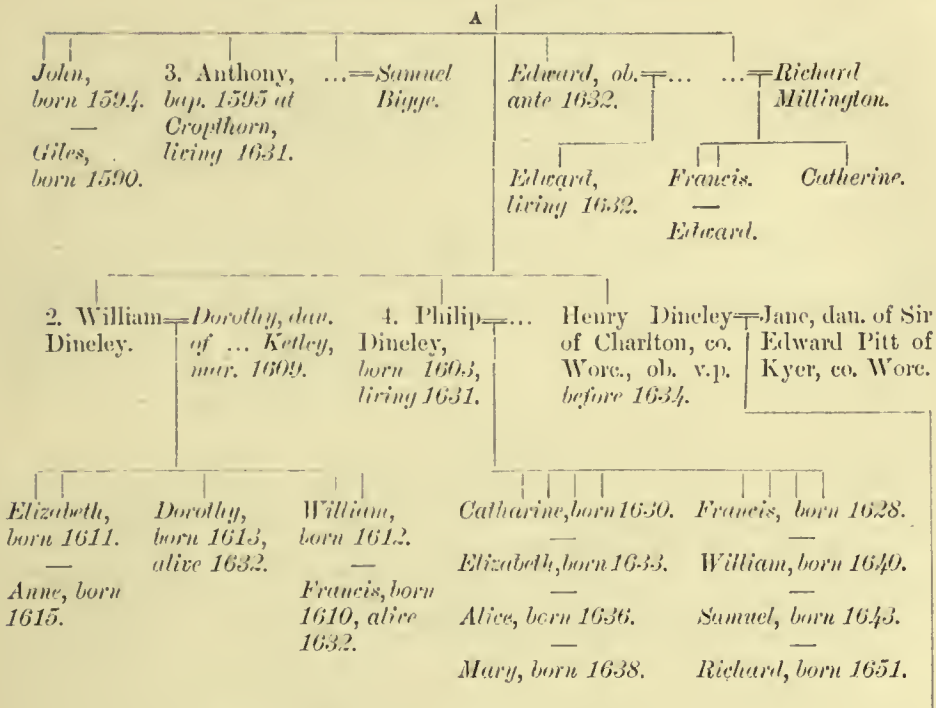 A
John,
born 1594.
—
Giles,
born 1590.
3. Anthony,
bap. 1595 at
Cropthorn,
living 1631.
...=Samuel
Bigge.
Edward, ob.=...
ante 1632.
...=Richard
Millington.
Edward,
living 1632.
Francis.
—
Edward.
Catherine.
2. William=Dorothy, dau.
Dineley. of ... Ketley,
mar. 1609.
4. Philip=...
Dineley,
born 1603,
living 1631.
Henry Dineley=Jane, dau. of Sir
of Charlton, co. Edward Pitt of
Worc., ob. v.p. Kyer, co. Worc.
before 1634.
Elizabeth,
born 1611.
—
Anne, born
1615.
Dorothy,
born 1613,
alive 1632.
William,
born 1612.
—
Francis, born
1610, alive
1632.
Catharine, born 1630.
—
Elizabeth, born 1633.
—
Alice, born 1636.
—
Mary, born 1638.
Francis, born 1628.
—
William, born 1640.
—
Samuel, born 1643.
—
Richard, born 1651.